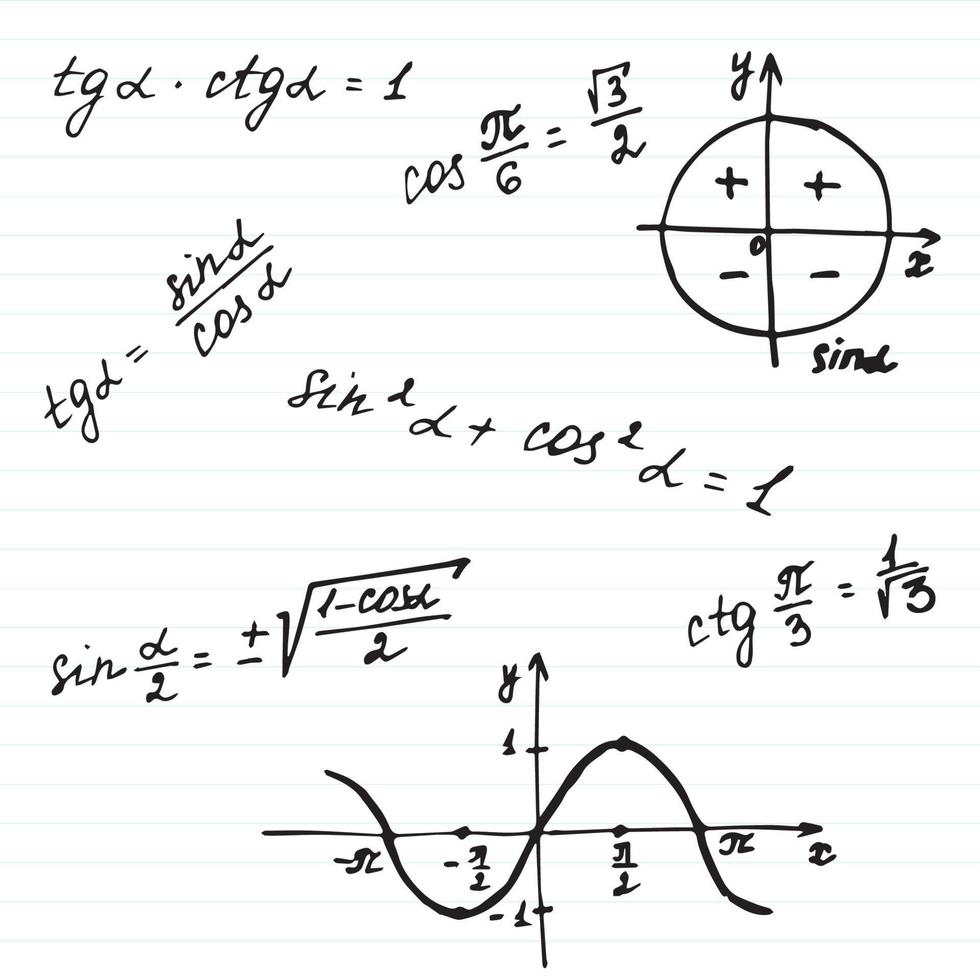 tgα · ctgα = 1
cos π/6 = √3/2
y
+ +
0
x
− −
sinα
tgα = sinα/cosα
sin²α + cos²α = 1
ctg π/3 = 1/√3
sin α/2 = ±√((1-cosα)/2)
y
1
-π -π/2 π/2 π x
-1